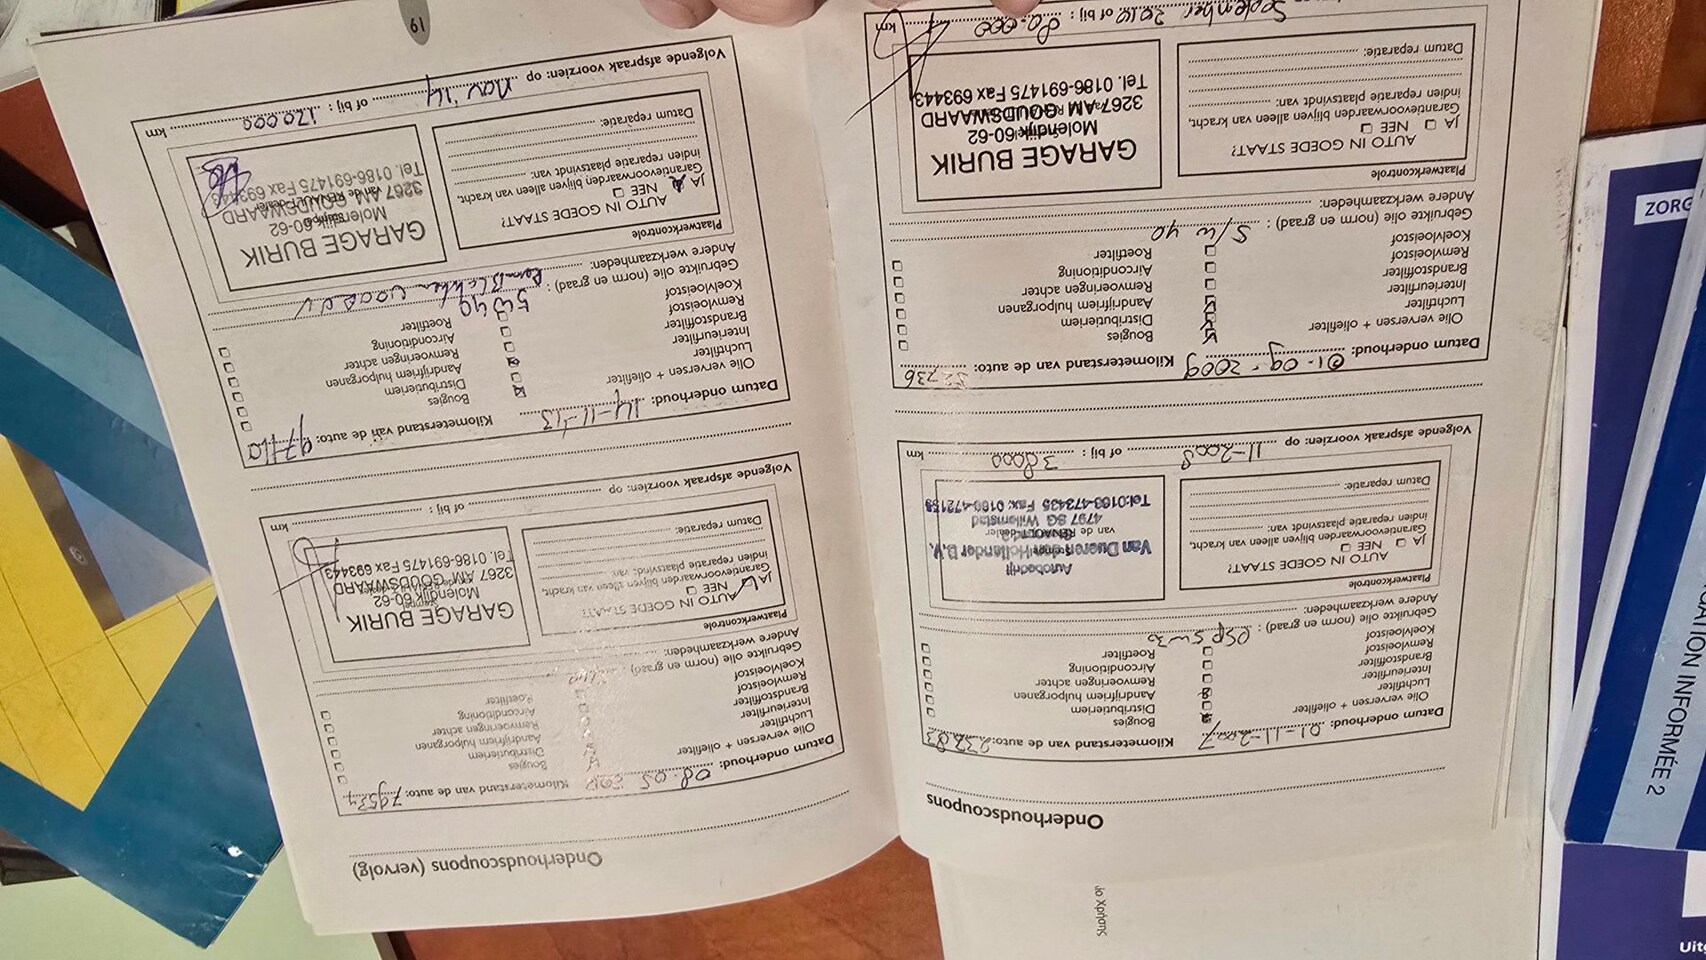 Onderhoudscoupons
Datum onderhoud: 01-11-2007 Kilometerstand van de auto: 23283
Olie verversen + oliefilter
Luchtfilter
Interieurfilter
Brandstoffilter
Remvloeistof
Koelvloeistof
Bougies
Distributieriem
Aandrijfriem hulporganen
Remvoeringen achter
Airconditioning
Roetfilter
Gebruikte olie (norm en graad) : 5w30
Andere werkzaamheden:
Plaatwerkcontrole
AUTO IN GOEDE STAAT?
JA NEE
Garantievoorwaarden blijven alleen van kracht,
indien reparatie plaatsvindt van:
Datum reparatie:
Autobedrijf
Van Dueren den Hollander B.V.
4797 SG Willemstad
Tel:0168-473435 Fax: 0168-472159
Volgende afspraak voorzien: op: 11-2008 of bij : 38000 km
Datum onderhoud: 01-09-2009 Kilometerstand van de auto: 52736
Olie verversen + oliefilter
Luchtfilter
Interieurfilter
Brandstoffilter
Remvloeistof
Koelvloeistof
Bougies
Distributieriem
Aandrijfriem hulporganen
Remvoeringen achter
Airconditioning
Roetfilter
Gebruikte olie (norm en graad) : 5/w 40
Andere werkzaamheden:
Plaatwerkcontrole
AUTO IN GOEDE STAAT?
JA NEE
Garantievoorwaarden blijven alleen van kracht,
indien reparatie plaatsvindt van:
Datum reparatie:
GARAGE BURIK
Molendijk 60-62
3267 AM GOUDSWAARD
Tel. 0186-691475 Fax 693443
September 2010 of bij : 80.000 km
Onderhoudscoupons (vervolg)
Datum onderhoud: 08-05 2012 Kilometerstand van de auto: 79534
Olie verversen + oliefilter
Luchtfilter
Interieurfilter
Brandstoffilter
Remvloeistof
Koelvloeistof
Bougies
Distributieriem
Aandrijfriem hulporganen
Remvoeringen achter
Airconditioning
Roetfilter
Gebruikte olie (norm en graad) :
Andere werkzaamheden:
Plaatwerkcontrole
AUTO IN GOEDE STAAT?
JA NEE
Garantievoorwaarden blijven alleen van kracht,
indien reparatie plaatsvindt van:
Datum reparatie:
GARAGE BURIK
Molendijk 60-62
3267 AM GOUDSWAARD
Tel. 0186-691475 Fax 693443
Volgende afspraak voorzien: op: of bij : km
Datum onderhoud: 14-11-13 Kilometerstand van de auto: 97110
Olie verversen + oliefilter
Luchtfilter
Interieurfilter
Brandstoffilter
Remvloeistof
Koelvloeistof
Bougies
Distributieriem
Aandrijfriem hulporganen
Remvoeringen achter
Airconditioning
Roetfilter
Gebruikte olie (norm en graad) : 5w40
Andere werkzaamheden: RemBlokken vooras
Plaatwerkcontrole
AUTO IN GOEDE STAAT?
JA NEE
Garantievoorwaarden blijven alleen van kracht,
indien reparatie plaatsvindt van:
Datum reparatie:
GARAGE BURIK
Molendijk 60-62
3267 AM GOUDSWAARD
Tel. 0186-691475 Fax 693443
Volgende afspraak voorzien: op: nov '14 of bij : 120.000 km
19
ZORG
ATION INFORMÉE 2